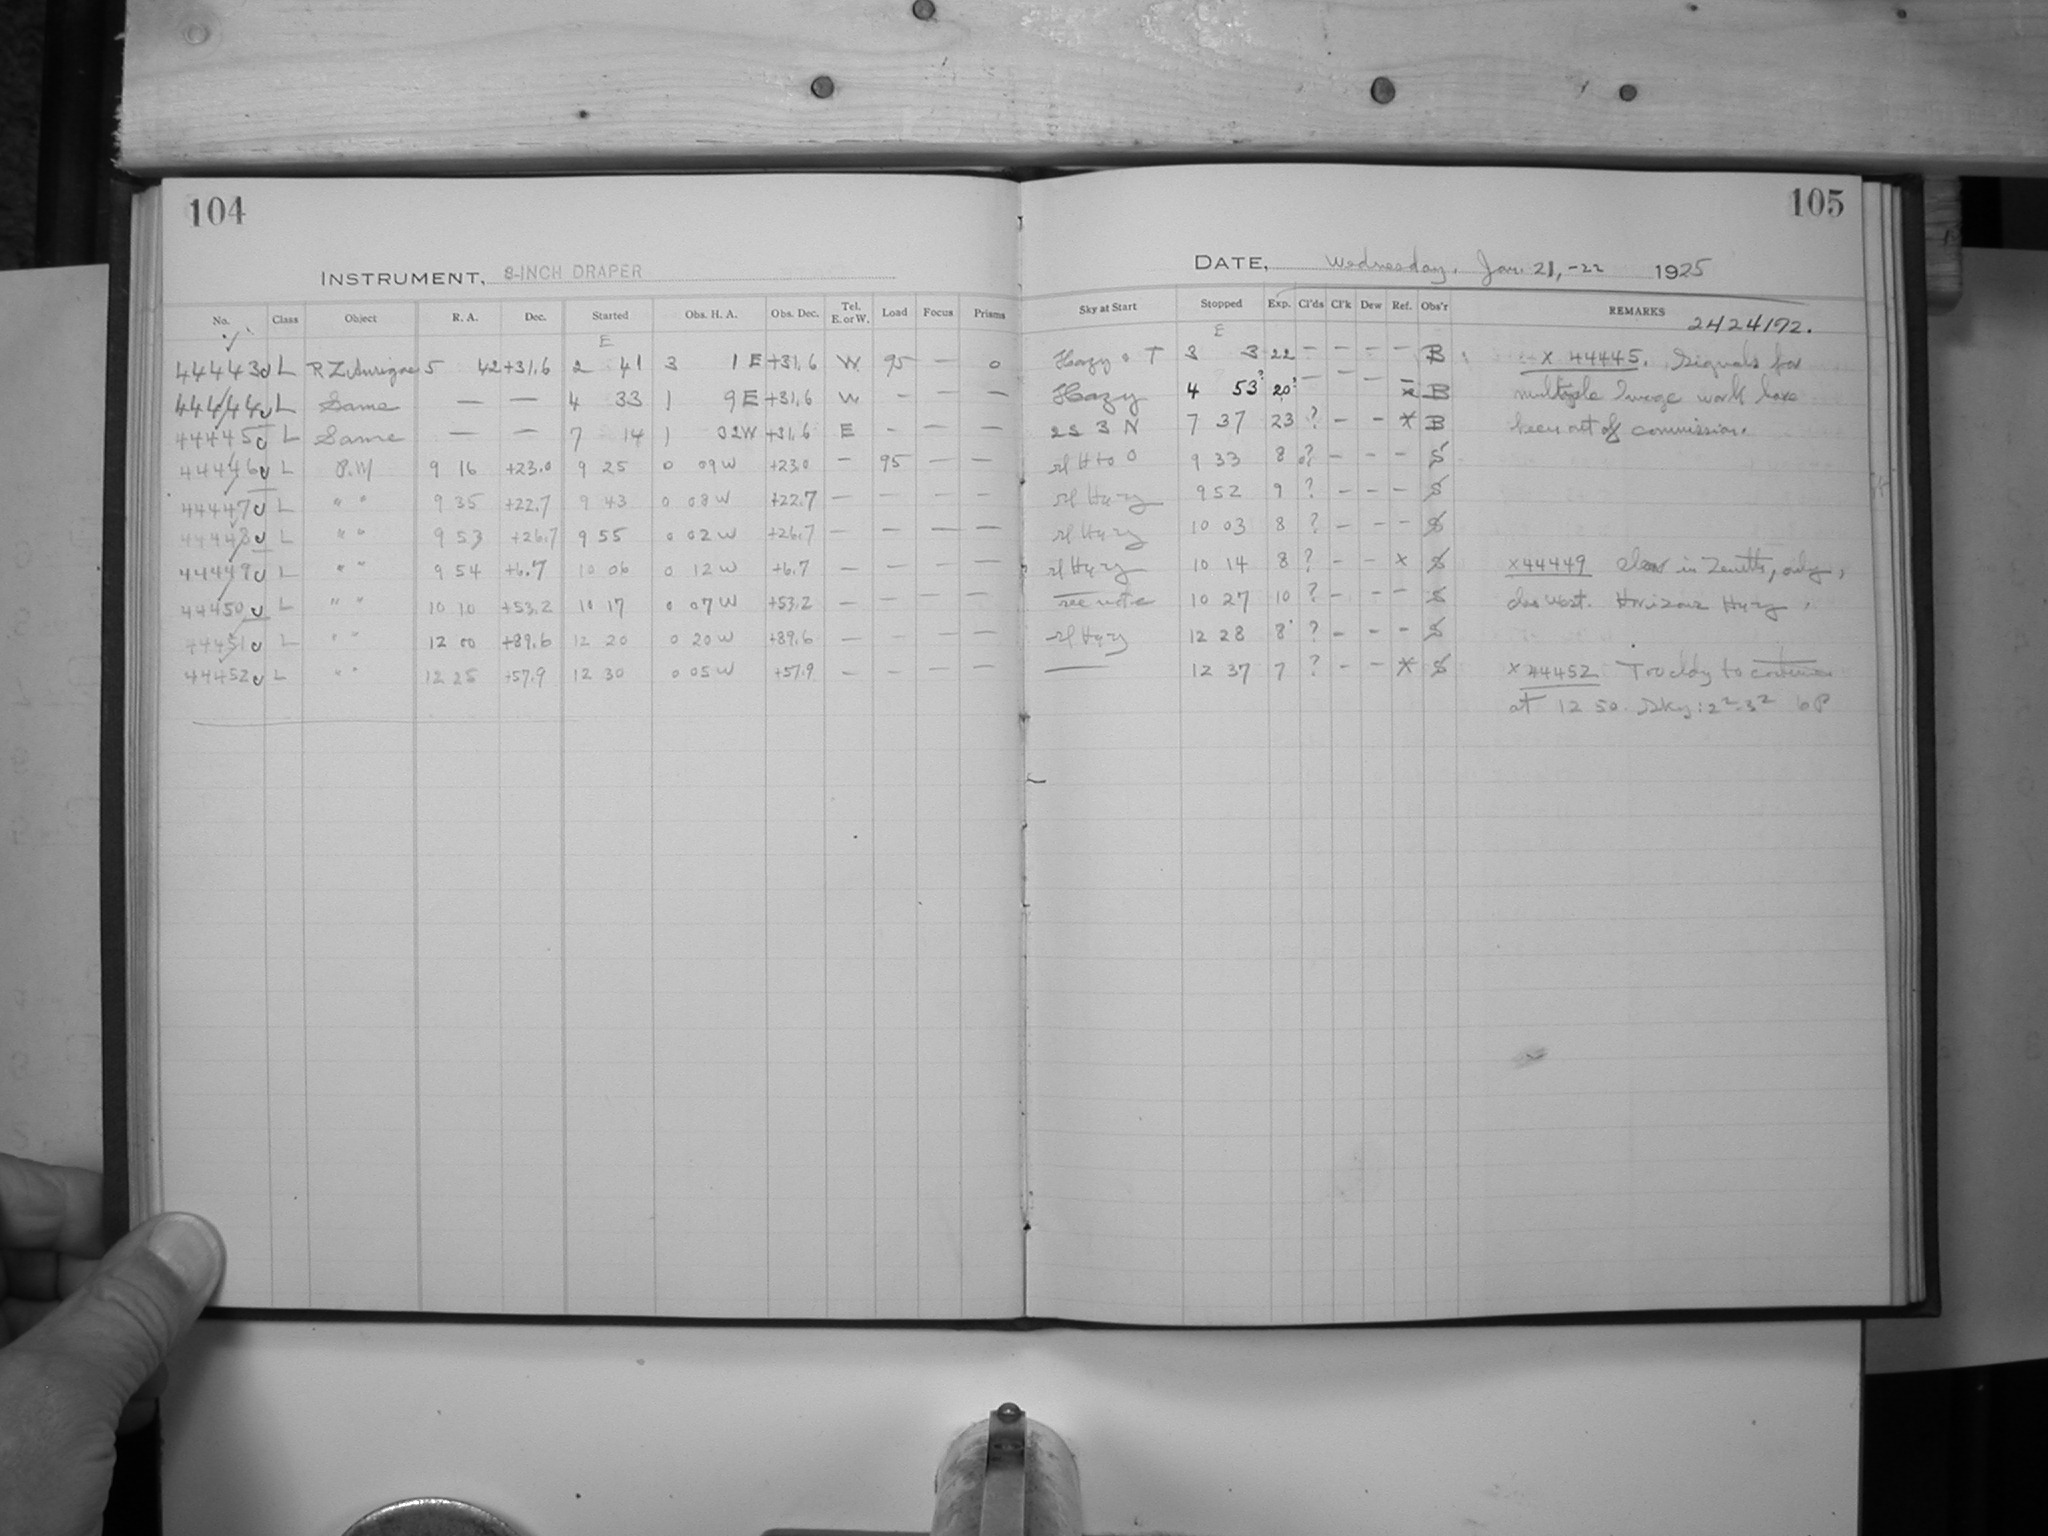 104
INSTRUMENT, 8-INCH DRAPER
No. Class Object R. A. Dec. Started Obs. H. A. Obs. Dec. Tel. E. or W. Load Focus Prisms
E
44443 L RZ Aurigae 5 42 +31.6 2 41 3 1 E +31.6 W 95 — 0
44444 L Same — — 4 33 1 9 E +31.6 W - — —
44445 L Same — — 7 14 1 32 W +31.6 E - — —
44446 L P.M 9 16 +23.0 9 25 0 09 W +23.0 — 95 — —
44447 L " " 9 35 +22.7 9 43 0 08 W +22.7 — — — —
44448 L " " 9 53 +26.7 9 55 0 02 W +26.7 — — — —
44449 L " " 9 54 +6.7 10 06 0 12 W +6.7 — — — —
44450 L " " 10 10 +53.2 10 17 0 07 W +53.2 — — — —
44451 L " " 12 00 +39.6 12 20 0 20 W +39.6 — — — —
44452 L " " 12 25 +57.9 12 30 0 05 W +57.9 — — — —
105
DATE, Wednesday, Jan. 21, -22 1925
Sky at Start Stopped Exp. Cl'ds Cl'k Dew Ref. Obs'r REMARKS
2424172.
E
Hazy T 3 3 22 — — — — B x 44445. Signals for
Hazy 4 53? 20? — — — x B multiple Image work have
2S 3 N 7 37 23 ? — — x B been out of commission.
sl H to 0 9 33 8 ? — — — S
sl Hazy 9 52 9 ? — — — S
sl Hazy 10 03 8 ? — — — S
sl Hazy 10 14 8 ? — — x S x 44449 clear in Zenith, only,
see note 10 27 10 ? — — — S West. Horizon Hazy.
sl Hazy 12 28 8 ? — — — S
— 12 37 7 ? — — x S x 44452 Too cldy to continue
at 12 50. Sky: 2²-3²